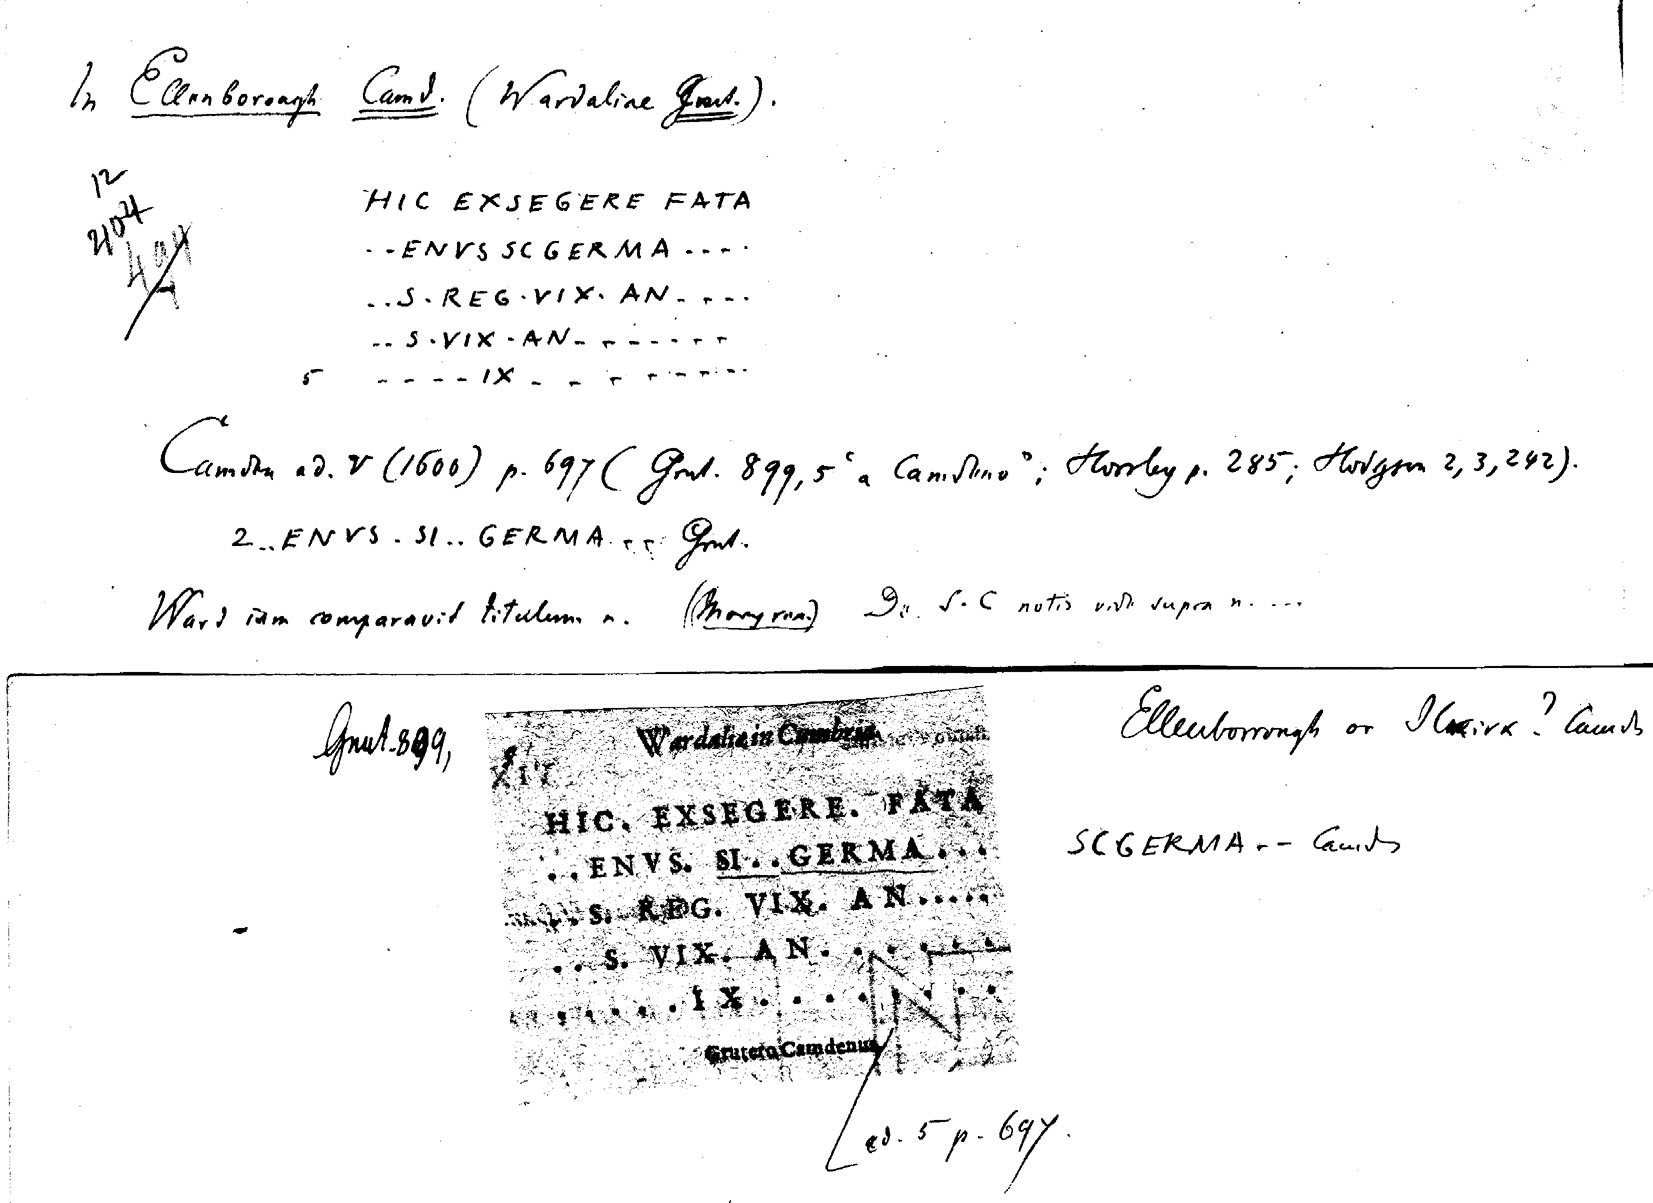 In Ellenborough Camd. (Wardaliae Grut.).
12
404
494
HIC EXSEGERE FATA
..ENVS SCGERMA....
..S.REG.VIX.AN....
..S.VIX.AN.......
5 ....IX.........
Camden ed. V (1600) p. 697 (Grut. 899,5 'a Camdeno'; Horsley p. 285; Hodgson 2,3,242).
2..ENVS.SI..GERMA... Grut.
Ward iam comparavit titulum n. De S.C notis vide supra n....
Grut. 899,
Wardaliæ in Cumbria
HIC. EXSEGERE. FATA
..ENVS. SI..GERMA...
..S. REG. VIX. AN.....
..S. VIX. AN.......
......IX.........
Grutero Camdenus
ed. 5 p. 697.
Ellenborrough or ? Camd
SCGERMA-- Camd